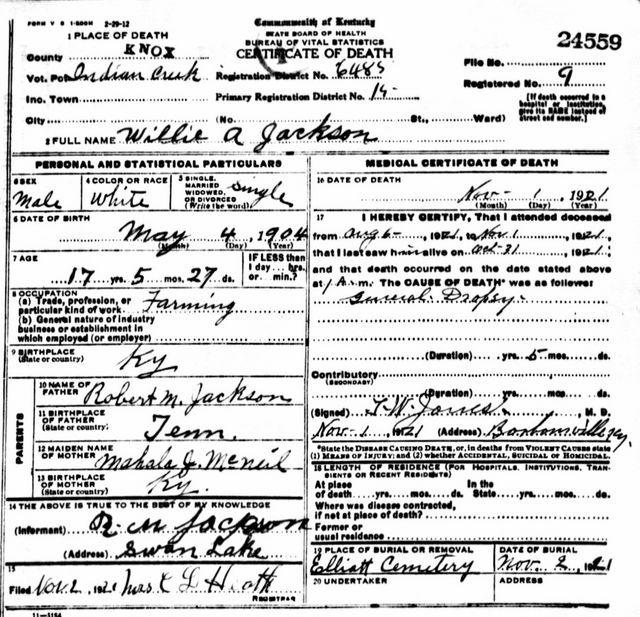 FORM V S 1-500M 2-29-12
Commonwealth of Kentucky
STATE BOARD OF HEALTH
BUREAU OF VITAL STATISTICS
CERTIFICATE OF DEATH
24559
1 PLACE OF DEATH
County KNOX
Vot. Pct Indian Creek Registration District No. 6485
File No.
Inc. Town Primary Registration District No. 15-
Registered No. 9
City (No. St., Ward)
[If death occurred in a hospital or institution, give its NAME instead of street and number.]
2 FULL NAME Willie A Jackson
PERSONAL AND STATISTICAL PARTICULARS
3 SEX
Male
4 COLOR OR RACE
White
5 SINGLE, MARRIED WIDOWED, OR DIVORCED (Write the word)
Single
6 DATE OF BIRTH
May 4, 1904
(Month) (Day) (Year)
7 AGE
17 yrs. 5 mos. 27 ds.
IF LESS than 1 day... hrs. or min.?
8 OCCUPATION
(a) Trade, profession, or particular kind of work Farming
(b) General nature of industry
business or establishment in
which employed (or employer)
9 BIRTHPLACE
(State or country)
Ky
PARENTS
10 NAME OF FATHER
Robert M. Jackson
11 BIRTHPLACE OF FATHER
(State or country)
Tenn.
12 MAIDEN NAME OF MOTHER
Mahala J. McNeil
13 BIRTHPLACE OF MOTHER
(State or country)
Ky.
14 THE ABOVE IS TRUE TO THE BEST OF MY KNOWLEDGE
(Informant) R. M Jackson
(Address) Swan Lake
15
Filed Nov 2, 1921 Mrs
REGISTRAR
11—3184
MEDICAL CERTIFICATE OF DEATH
16 DATE OF DEATH
Nov- 1 1921
(Month) (Day) (Year)
17 I HEREBY CERTIFY, That I attended deceased
from Aug 6-, 1921, to Nov 1, 1921,
that I last saw him alive on Oct-31, 1921,
and that death occurred on the date stated above
at 1 A.m. The CAUSE OF DEATH* was as follows:
General Dropsy.
(Duration) yrs. 5 mos. ds.
Contributory
(SECONDARY)
(Duration) yrs. mos. ds.
(Signed) M. D.
Nov-1, 1921 (Address) Barbourville Ky.
*State the DISEASE CAUSING DEATH, or, in deaths from VIOLENT CAUSES state
(1) MEANS OF INJURY; and (2) whether ACCIDENTAL, SUICIDAL OR HOMICIDAL.
18 LENGTH OF RESIDENCE (FOR HOSPITALS, INSTITUTIONS, TRANSIENTS OR RECENT RESIDENTS)
At place of death yrs. mos. ds. In the State yrs. mos. ds.
Where was disease contracted,
if not at place of death?
Former or
usual residence
19 PLACE OF BURIAL OR REMOVAL
Elliott Cemetery
DATE OF BURIAL
Nov. 2, 1921
20 UNDERTAKER
ADDRESS